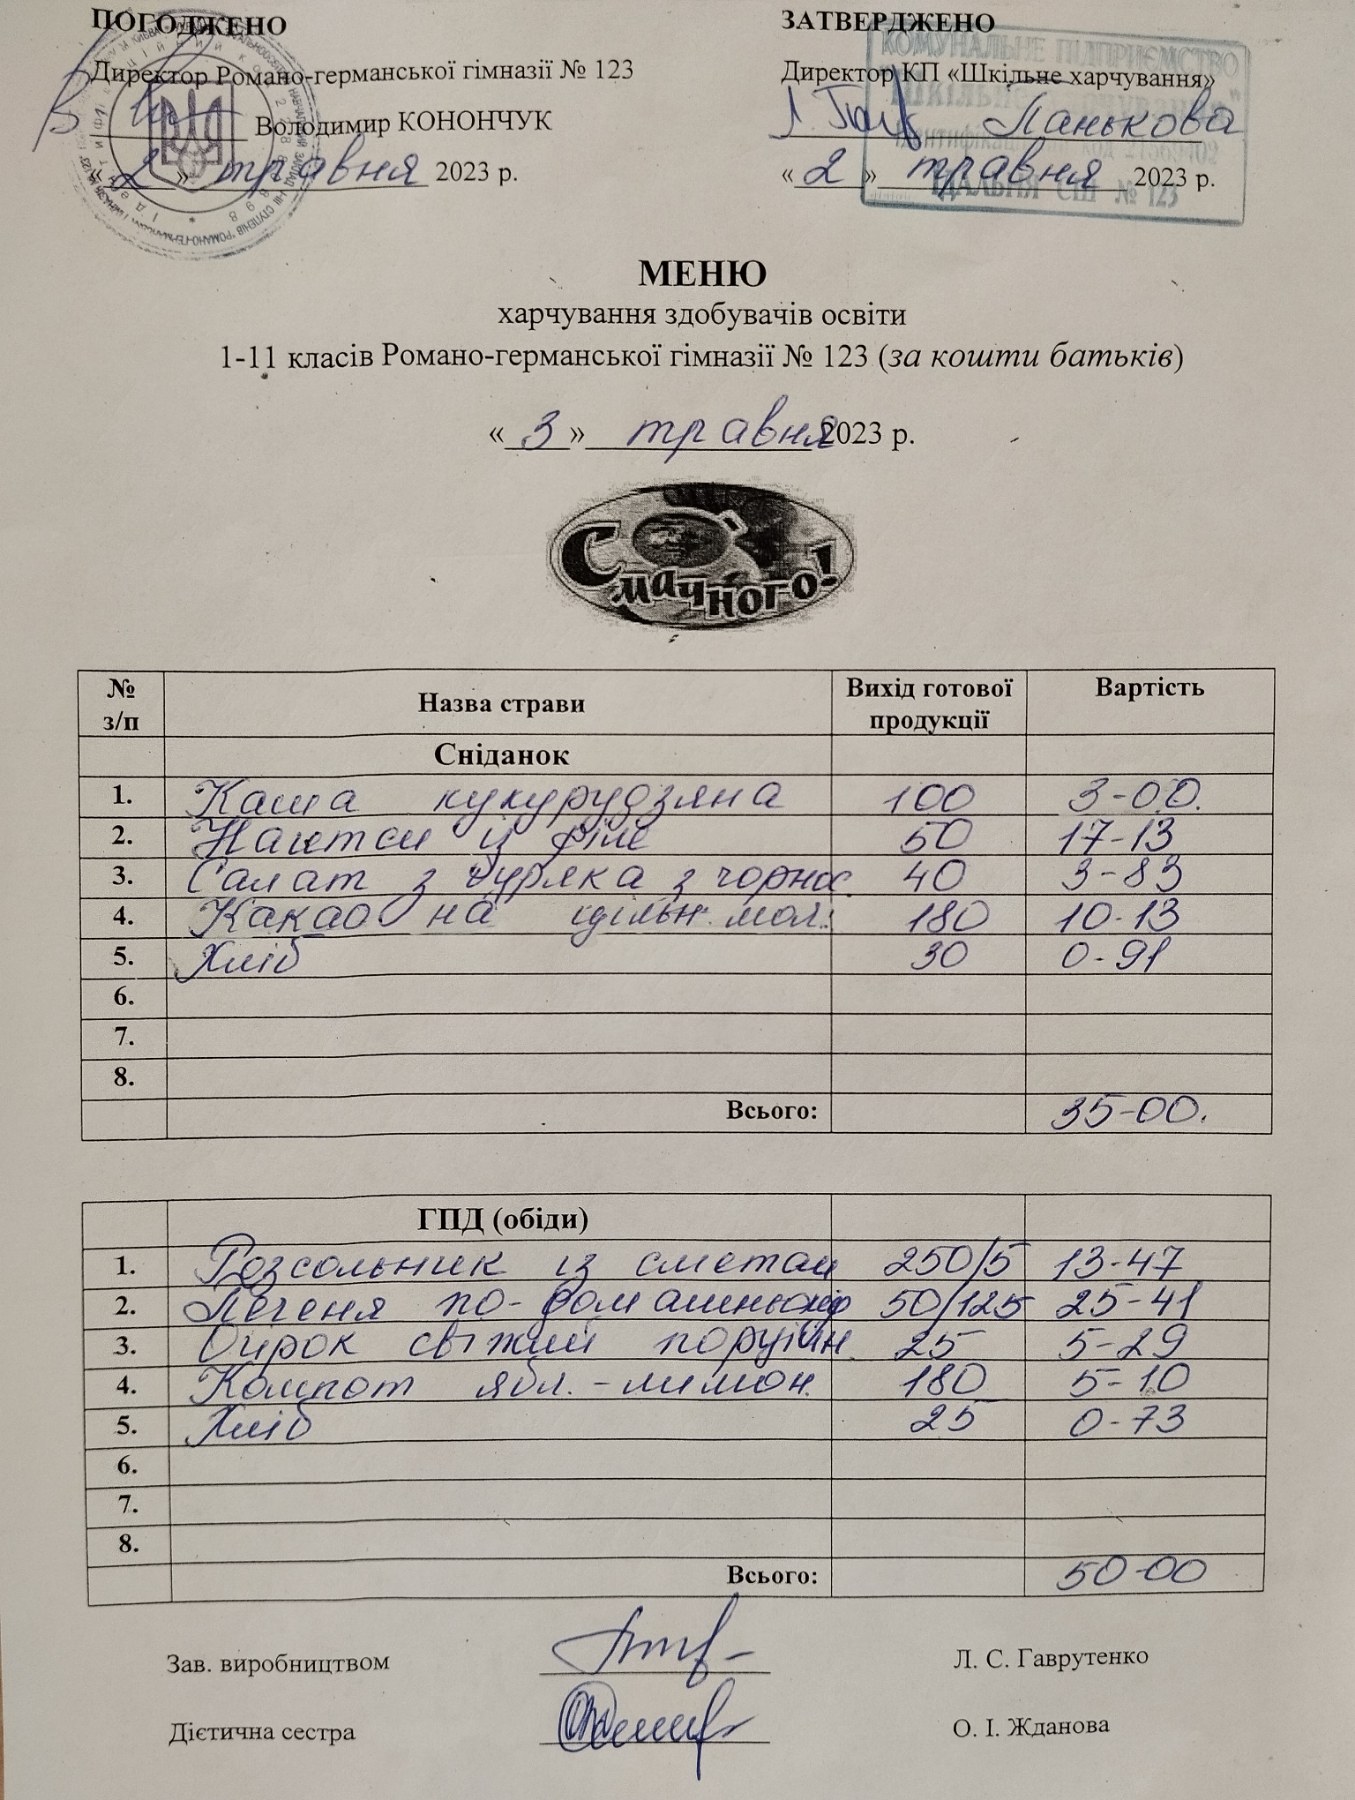 ПОГОДЖЕНО
Директор Романо-германської гімназії № 123
Володимир КОНОНЧУК
« 2 » травня 2023 р.
ЗАТВЕРДЖЕНО
КОМУНАЛЬНЕ ПІДПРИЄМСТВО
Директор КП «Шкільне харчування»
Панькова
« 2 » травня 2023 р.
ЇДАЛЬНЯ СШ № 123
МЕНЮ
харчування здобувачів освіти
1-11 класів Романо-германської гімназії № 123 (за кошти батьків)
« 3 » травня 2023 р.
Смачного!
№ з/п Назва страви Вихід готової продукції Вартість
Сніданок
1. Каша кукурудзяна 100 3-00.
2. Нагетси із філе 50 17-13
3. Салат з буряка з чорнос 40 3-83
4. Какао на цільн. мол. 180 10-13
5. Хліб 30 0-91
6.
7.
8.
Всього: 35-00.
ГПД (обіди)
1. Розсольник із сметан 250/5 13-47
2. Печеня по-домашньому 50/125 25-41
3. Огірок свіжий порційн. 25 5-29
4. Компот ябл.-лимон. 180 5-10
5. Хліб 25 0-73
6.
7.
8.
Всього: 50-00
Зав. виробництвом Л. С. Гаврутенко
Дієтична сестра О. І. Жданова